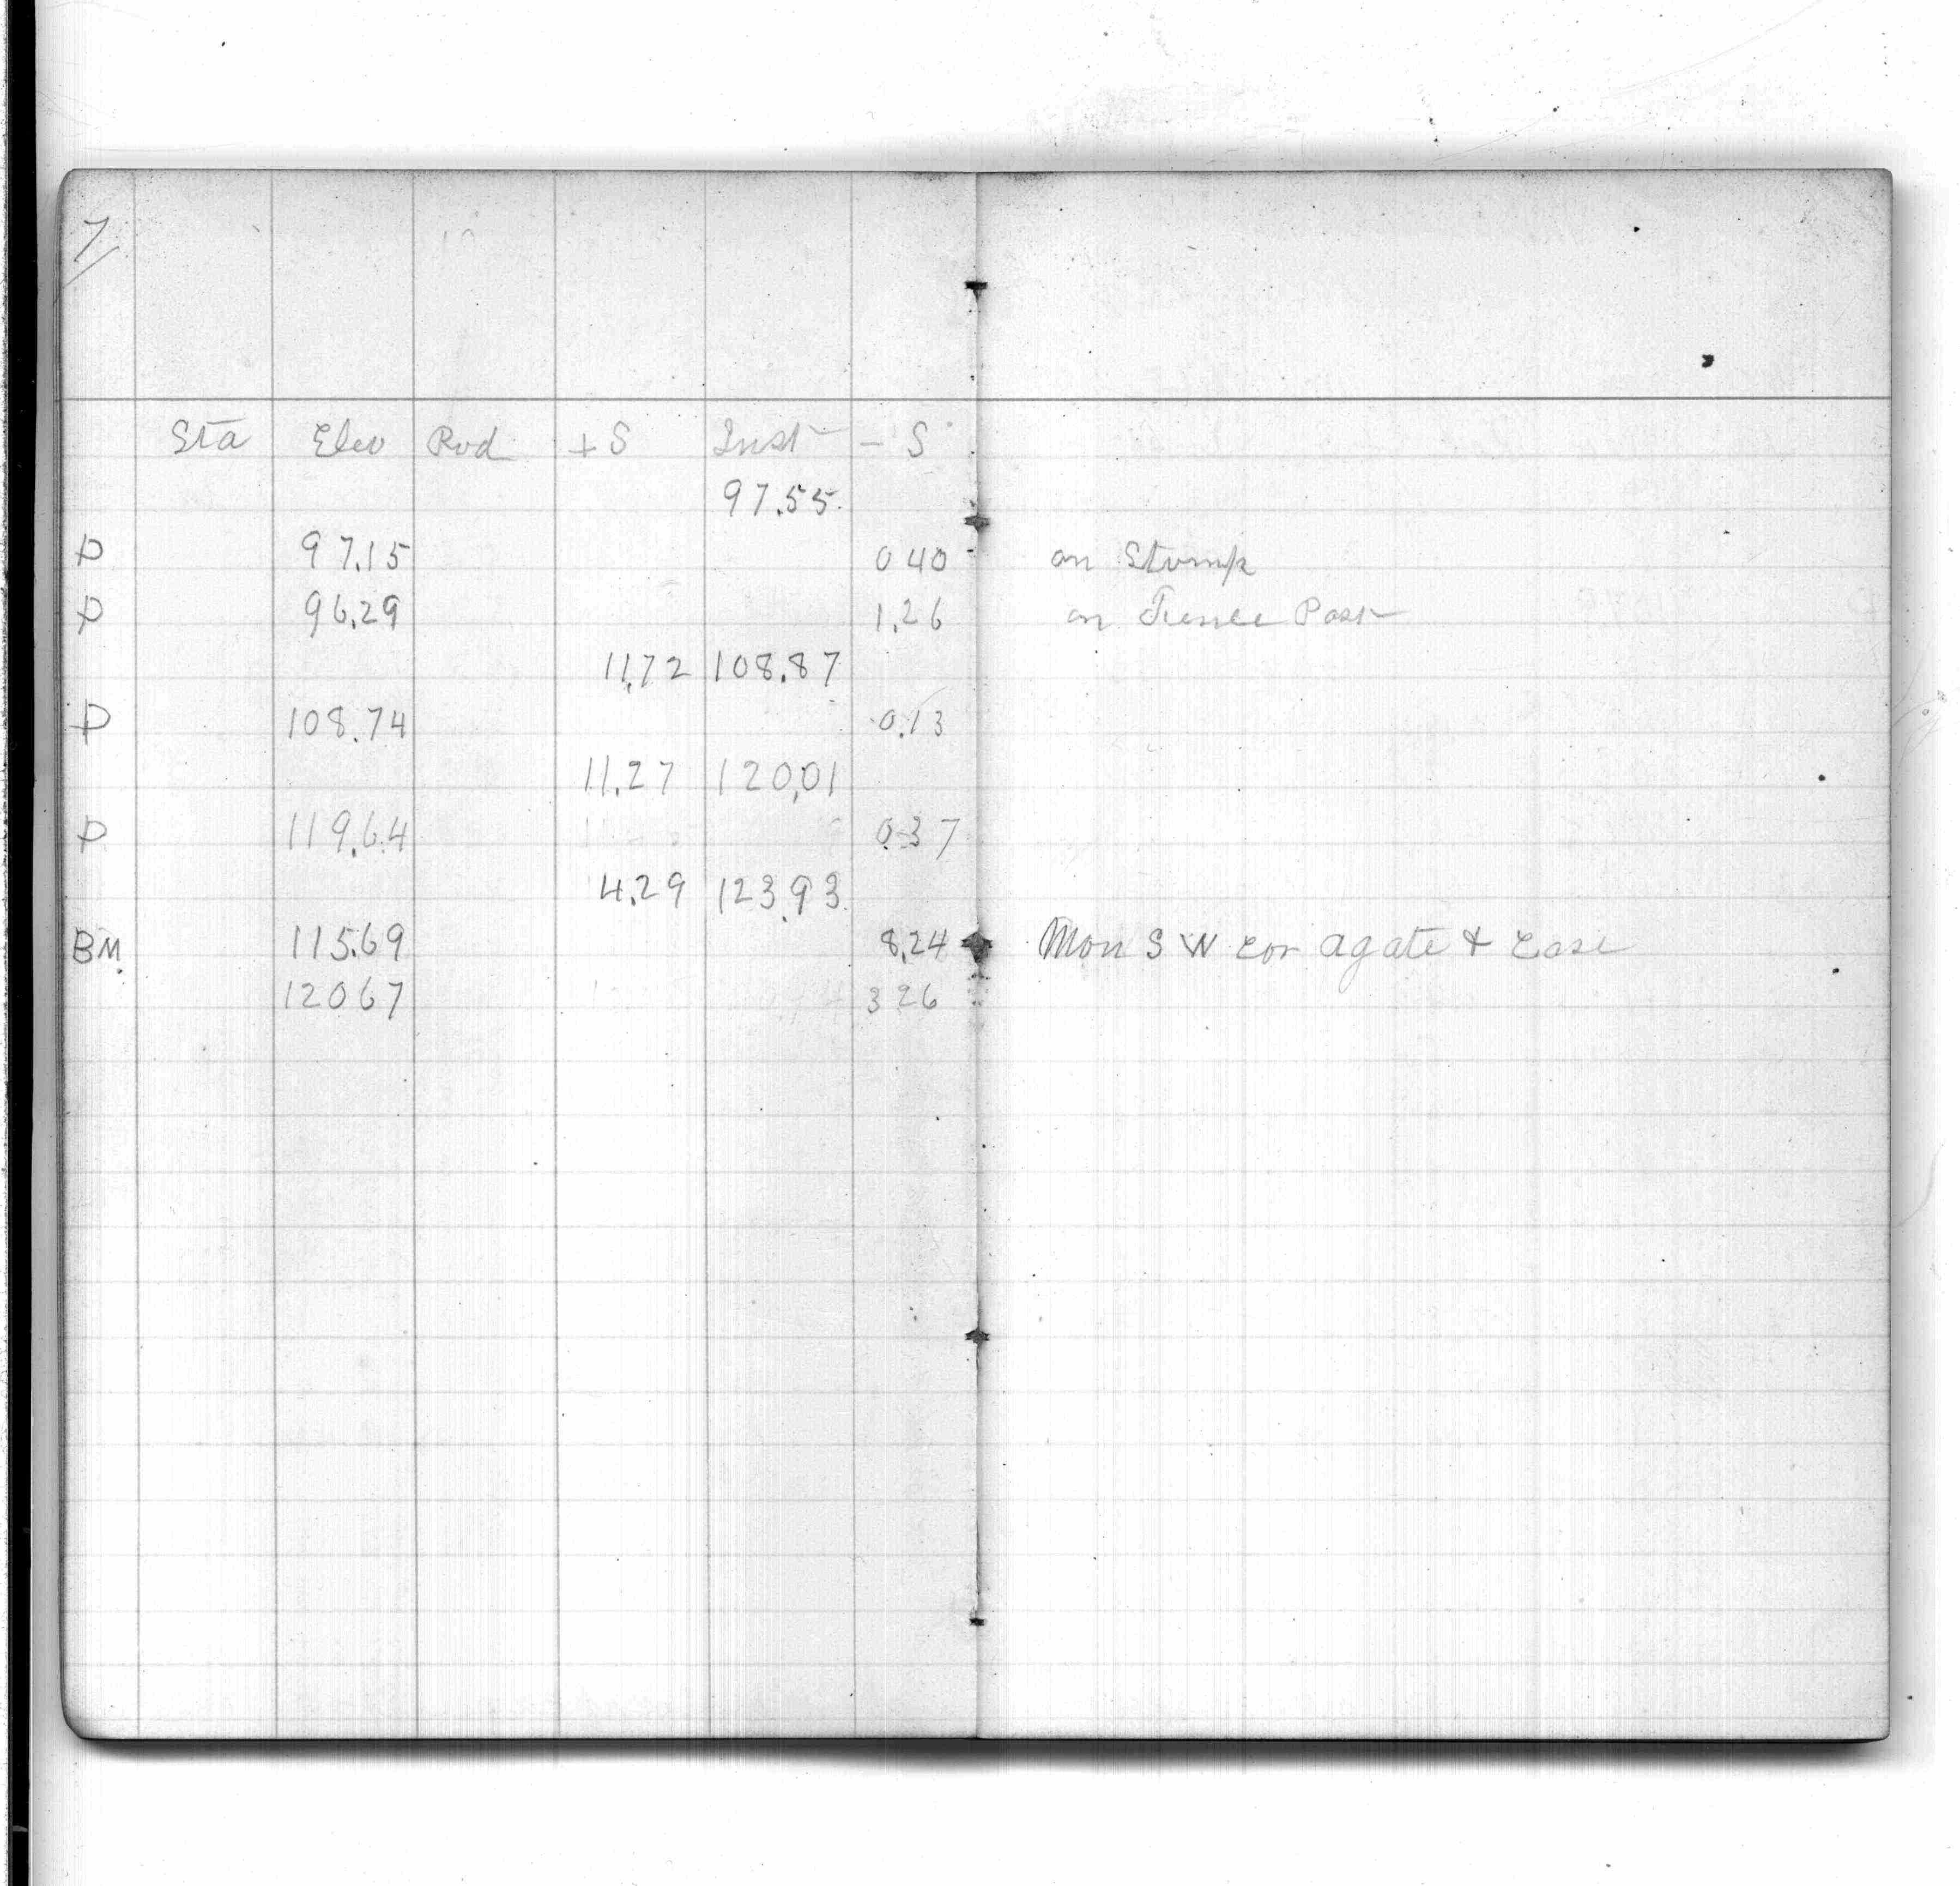 7
Sta Elev Rod + S Inst - S
97.55
P 97.15 0 40 on Stump
P 96.29 1.26 on Fence Post
11.72 108.87
P 108.74 0.13
11.27 120.01
P 119.64 0.37
4.29 123.93
BM. 115.69 8.24 Mon S W cor agate & Ease
120 67 3 26